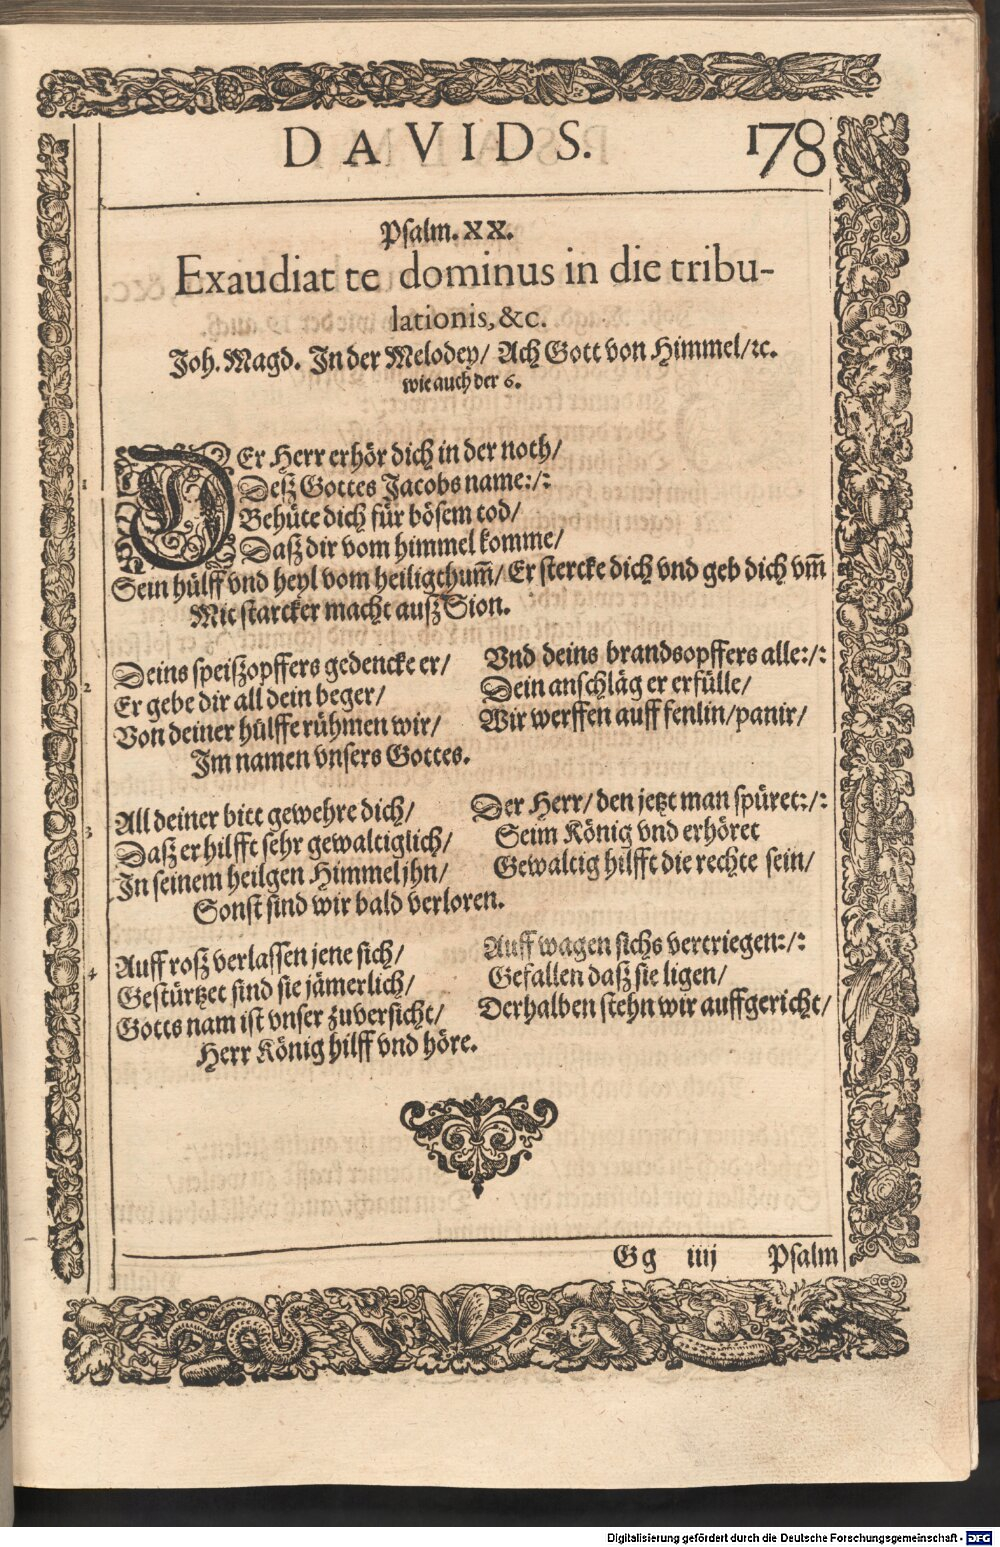 DAVIDS. 178
Psalm. XX.
Exaudiat te dominus in die tribu-
lationis, &c.
Joh. Magd. In der Melodey/ Ach Gott von Himmel/ꝛc.
wie auch der 6.
1 DEr Herr erhör dich in der noth/
Deß Gottes Jacobs name:/:
Behüte dich für bösem tod/
Daß dir vom himmel komme/
Sein hülff vnd heyl vom heiligthum̃/ Er stercke dich vnd geb dich vm̃
Mit starcker macht auß Sion.
2 Deins speißopffers gedencke er/ Vnd deins brandsopffers alle:/:
Er gebe dir all dein beger/ Dein anschläg er erfülle/
Von deiner hülffe rühmen wir/ Wir werffen auff fenlin/panir/
Im namen vnsers Gottes.
3 All deiner bitt gewehre dich/ Der Herr/ den jetzt man spüret:/:
Daß er hilfft sehr gewaltiglich/ Seim König vnd erhöret
In seinem heilgen Himmel jhn/ Gewaltig hilfft die rechte sein/
Sonst sind wir bald verloren.
4 Auff roß verlassen jene sich/ Auff wagen sichs vertriegen:/:
Gestürtzet sind sie jämerlich/ Gefallen daß sie ligen/
Gotts nam ist vnser zuversicht/ Derhalben stehn wir auffgericht/
Herr König hilff vnd höre.
Gg iiij Psalm
Digitalisierung gefördert durch die Deutsche Forschungsgemeinschaft - DFG